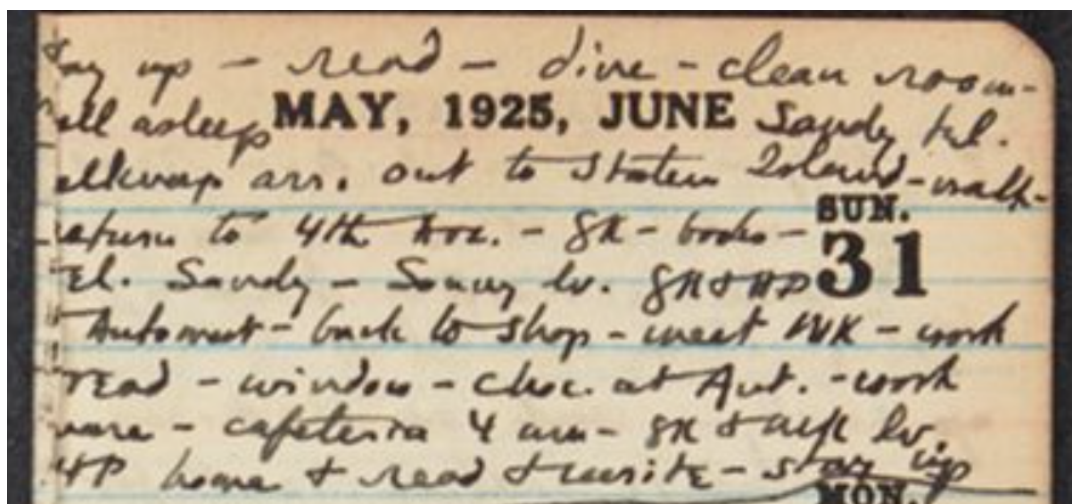 up - read - dine - clean room -
asleep MAY, 1925, JUNE Sandy tel.
arr. out to Staten Island - walk -
to 4th Ave. - GK - books - SUN.
Tel. Sandy - Sonny lv. GK & HP 31
Automat - back to shop - meet - work
read - window - choc. at Aut. - work
more - cafeteria 4 am - GK & lv.
HP home & read & write - stay up
MON.